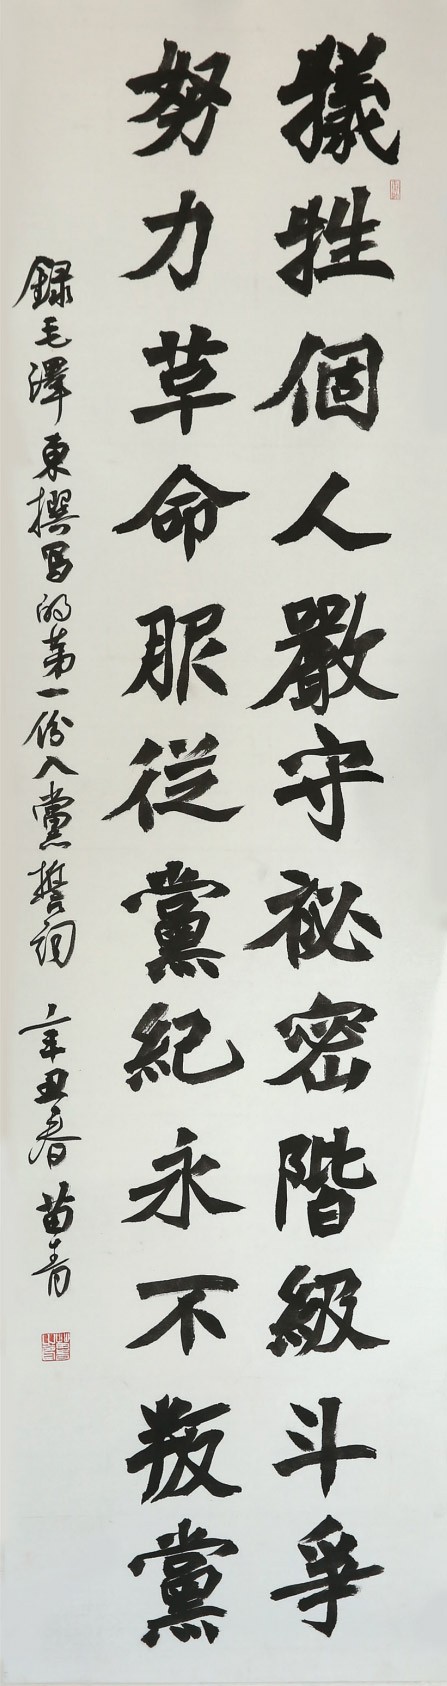 犠牲個人嚴守祕密階級斗爭
努力革命服從黨紀永不叛黨
録毛澤東撰写的第一份入黨誓詞 辛丑春 苗青